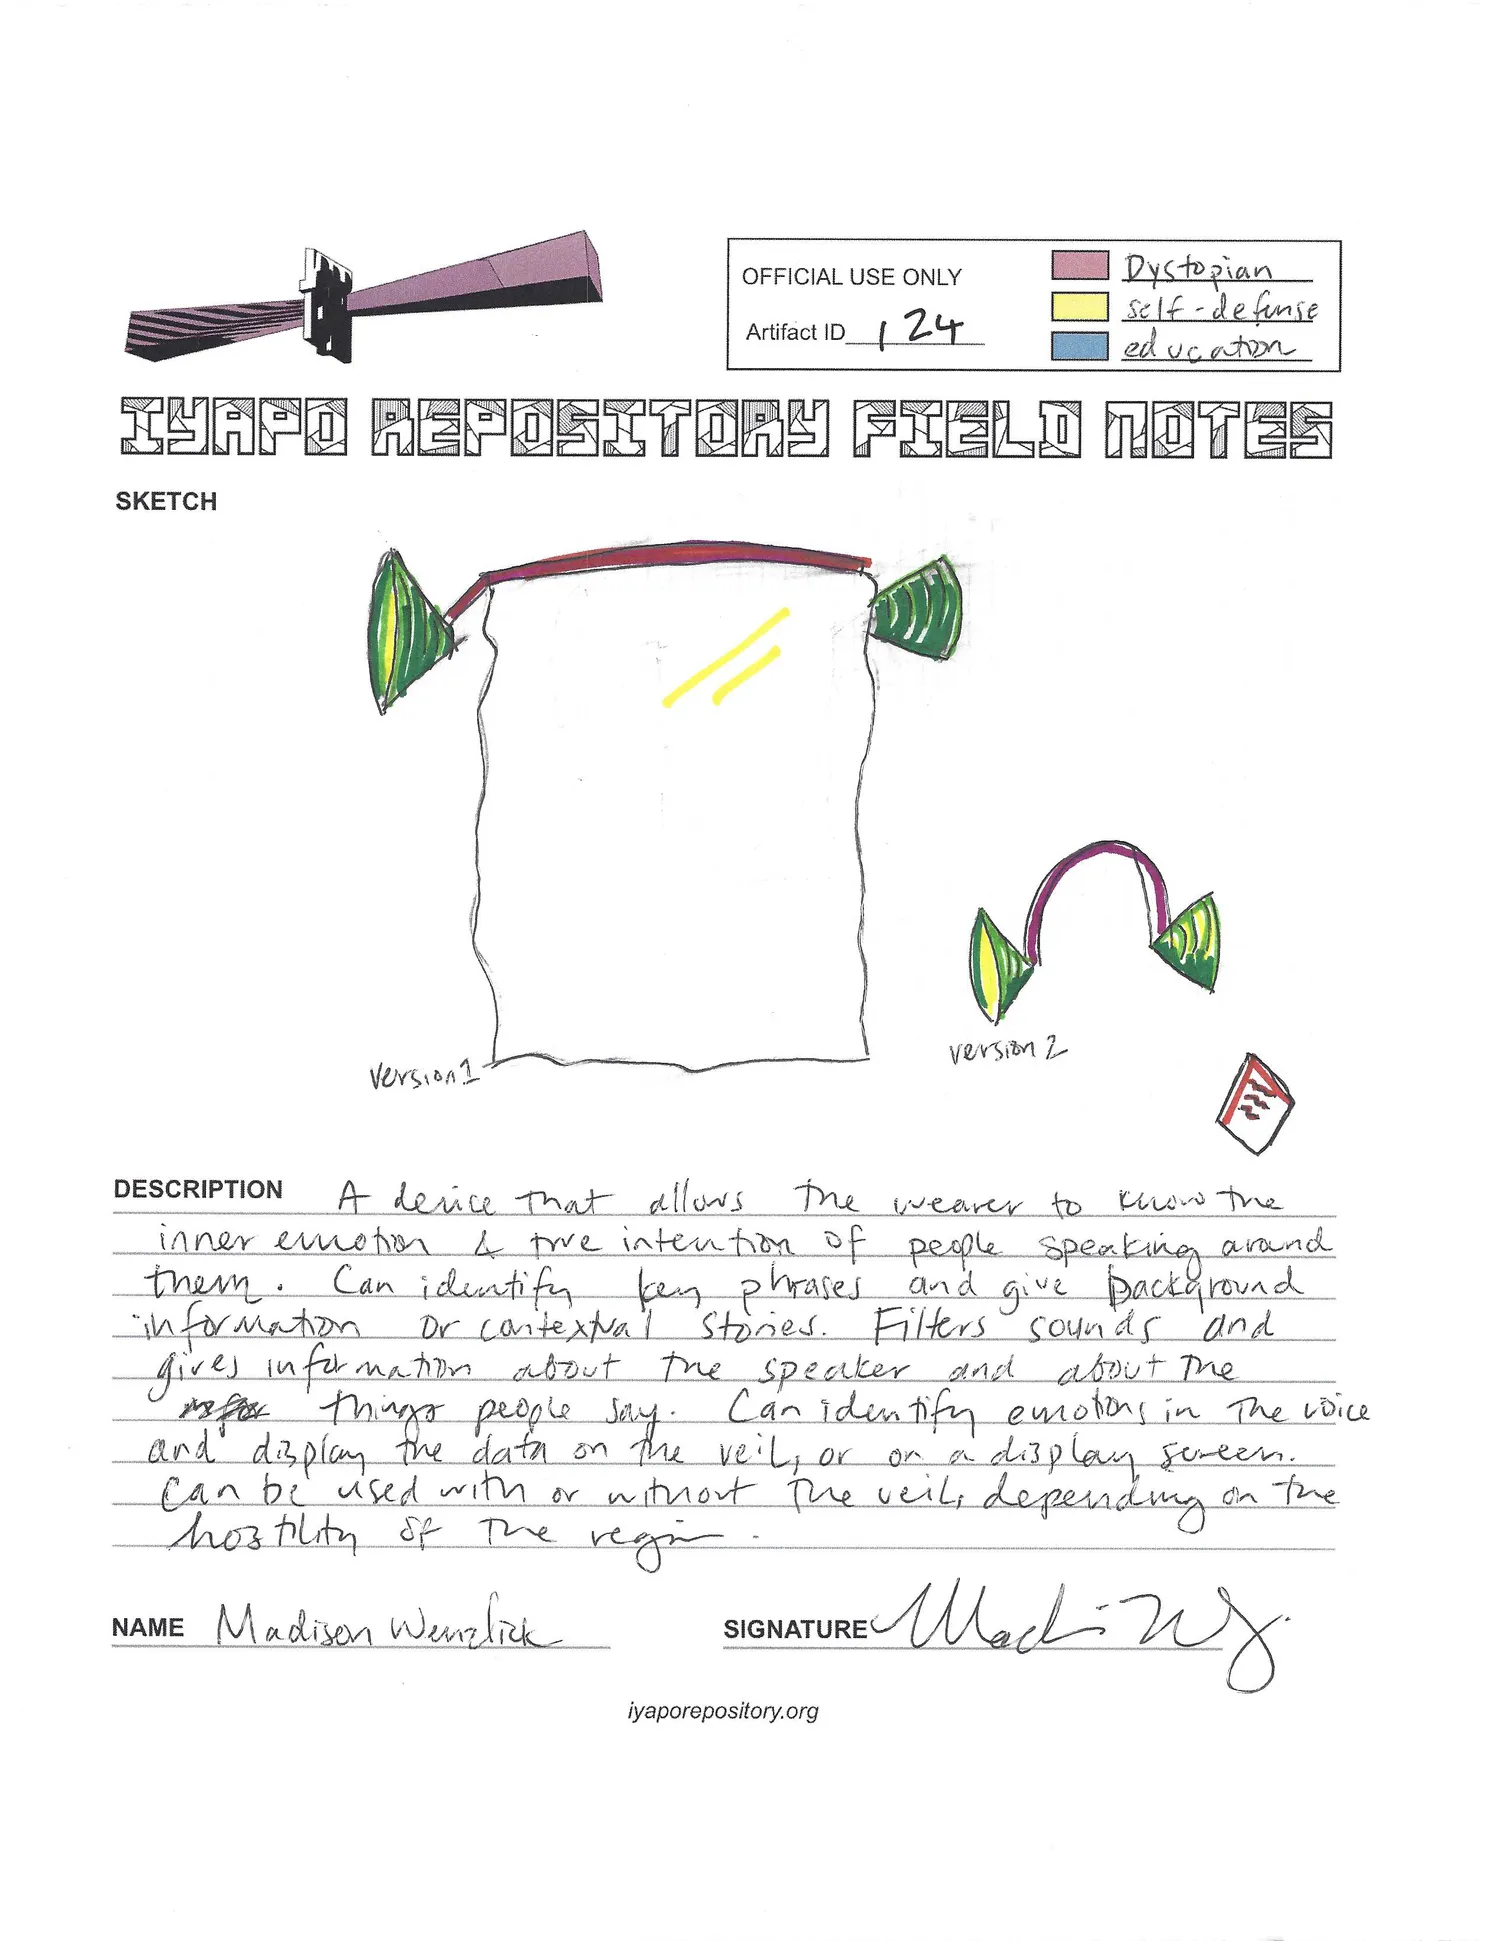 OFFICIAL USE ONLY
Artifact ID 124
Dystopian
self-defense
education
IYAPO REPOSITORY FIELD NOTES
SKETCH
version 1
version 2
DESCRIPTION A device that allows the wearer to know the
inner emotion & true intention of people speaking around
them. Can identify key phrases and give background
information or contextual stories. Filters sounds and
gives information about the speaker and about the
things people say. Can identify emotions in the voice
and display the data on the veil, or on a display screen.
Can be used with or without the veil, depending on the
hostility of the region.
NAME Madison Wenzlick
SIGNATURE
iyaporepository.org